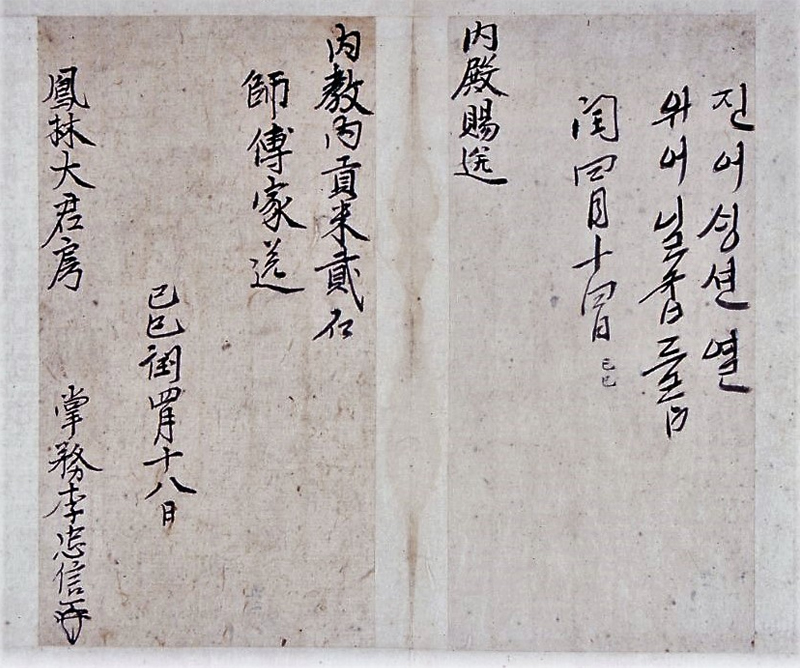 진어싱션열
위어닐굽드름
閏四月十四日 己巳
内殿賜送
内教内貢米貳石
師傅家送
己巳閏四月十八日
鳳林大君房 掌務李忠信